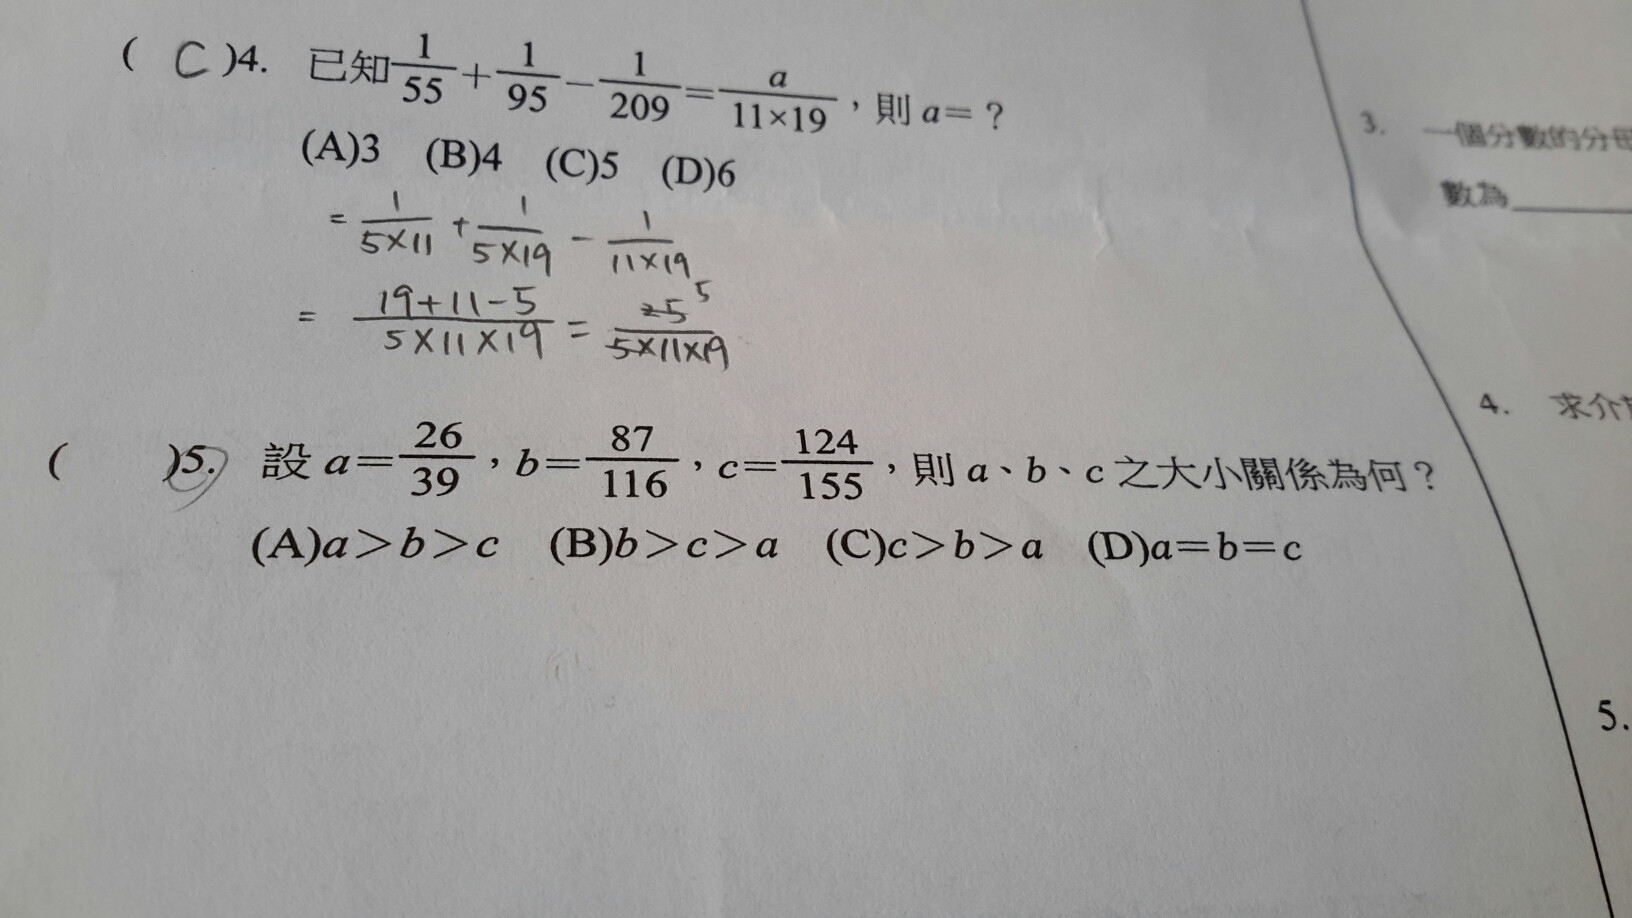 ( C )4. 已知 1/55 + 1/95 − 1/209 = a/(11×19)，則 a=？
(A)3 (B)4 (C)5 (D)6
= 1/(5×11) + 1/(5×19) − 1/(11×19)
= (19+11−5)/(5×11×19) = 25 5/(5×11×19)
( )5. 設 a= 26/39，b= 87/116，c= 124/155，則 a、b、c 之大小關係為何？
(A)a>b>c (B)b>c>a (C)c>b>a (D)a=b=c
3. 一個分數的分母
數為
4. 求介
5.